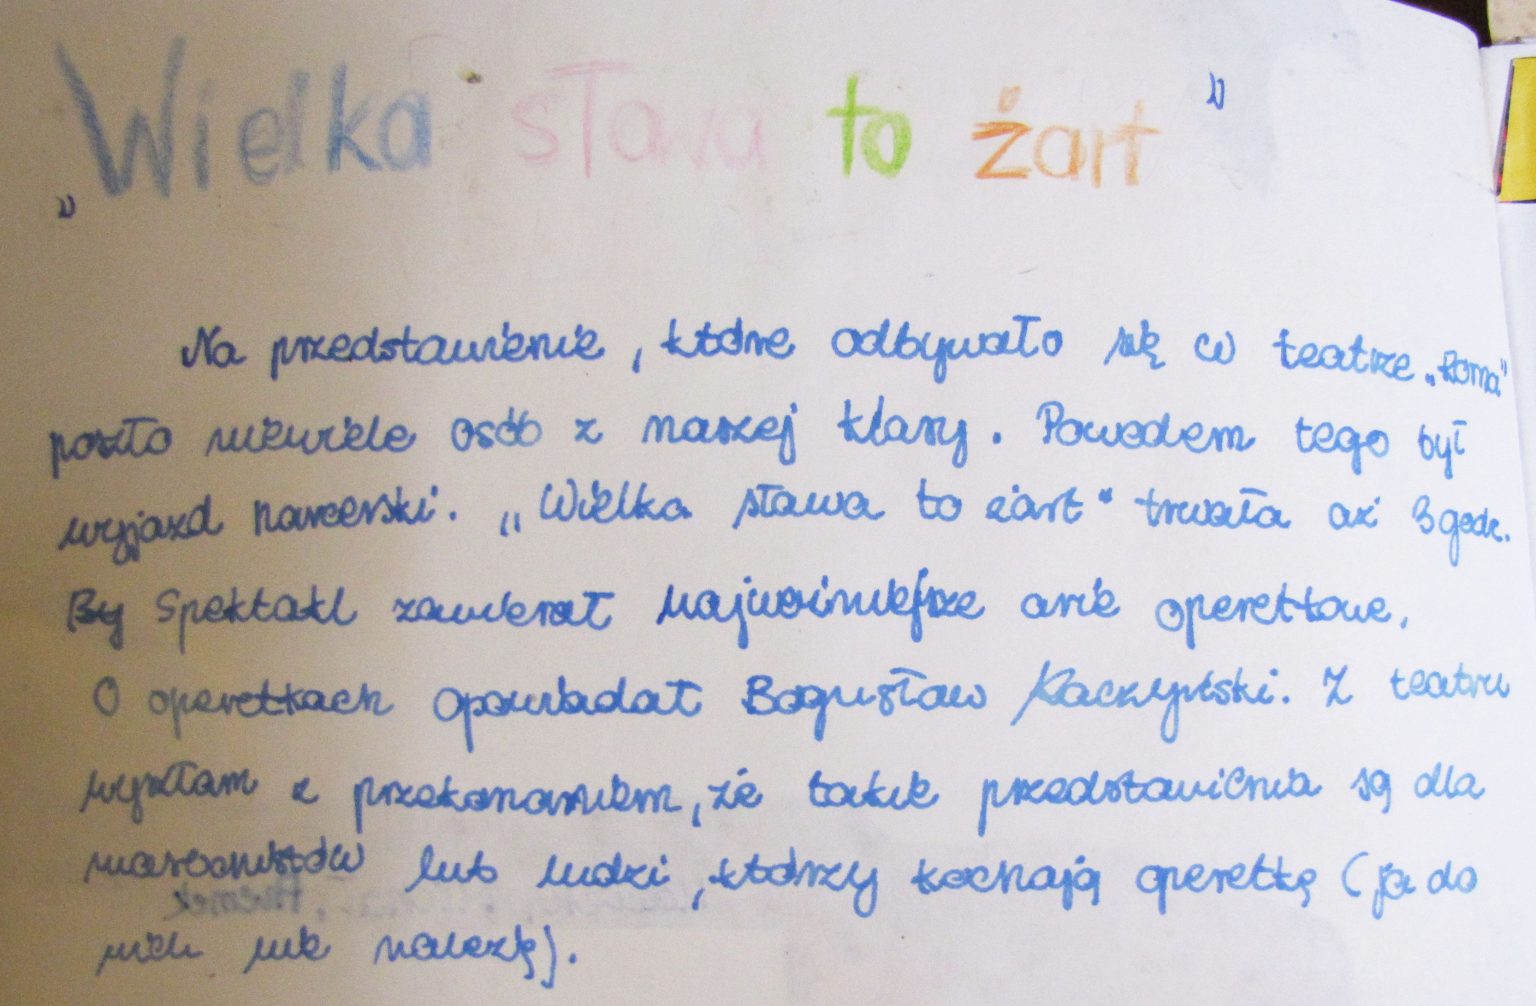 „Wielka sława to żart”
Na przedstawienie, które odbywało się w teatrze „Roma”
poszło niewiele osób z naszej klasy. Powodem tego był
wyjazd harcerski. „Wielka sława to żart” trwała aż 3 godz.
By Spektakl zawierał najważniejsze arie operetkowe.
O operetkach opowiadał Bogusław Kaczyński. Z teatru
wyszłam z przekonaniem, że takie przedstawienia są dla
marzonistów lub ludzi, którzy kochają operetkę (ja do
nich nie należę).